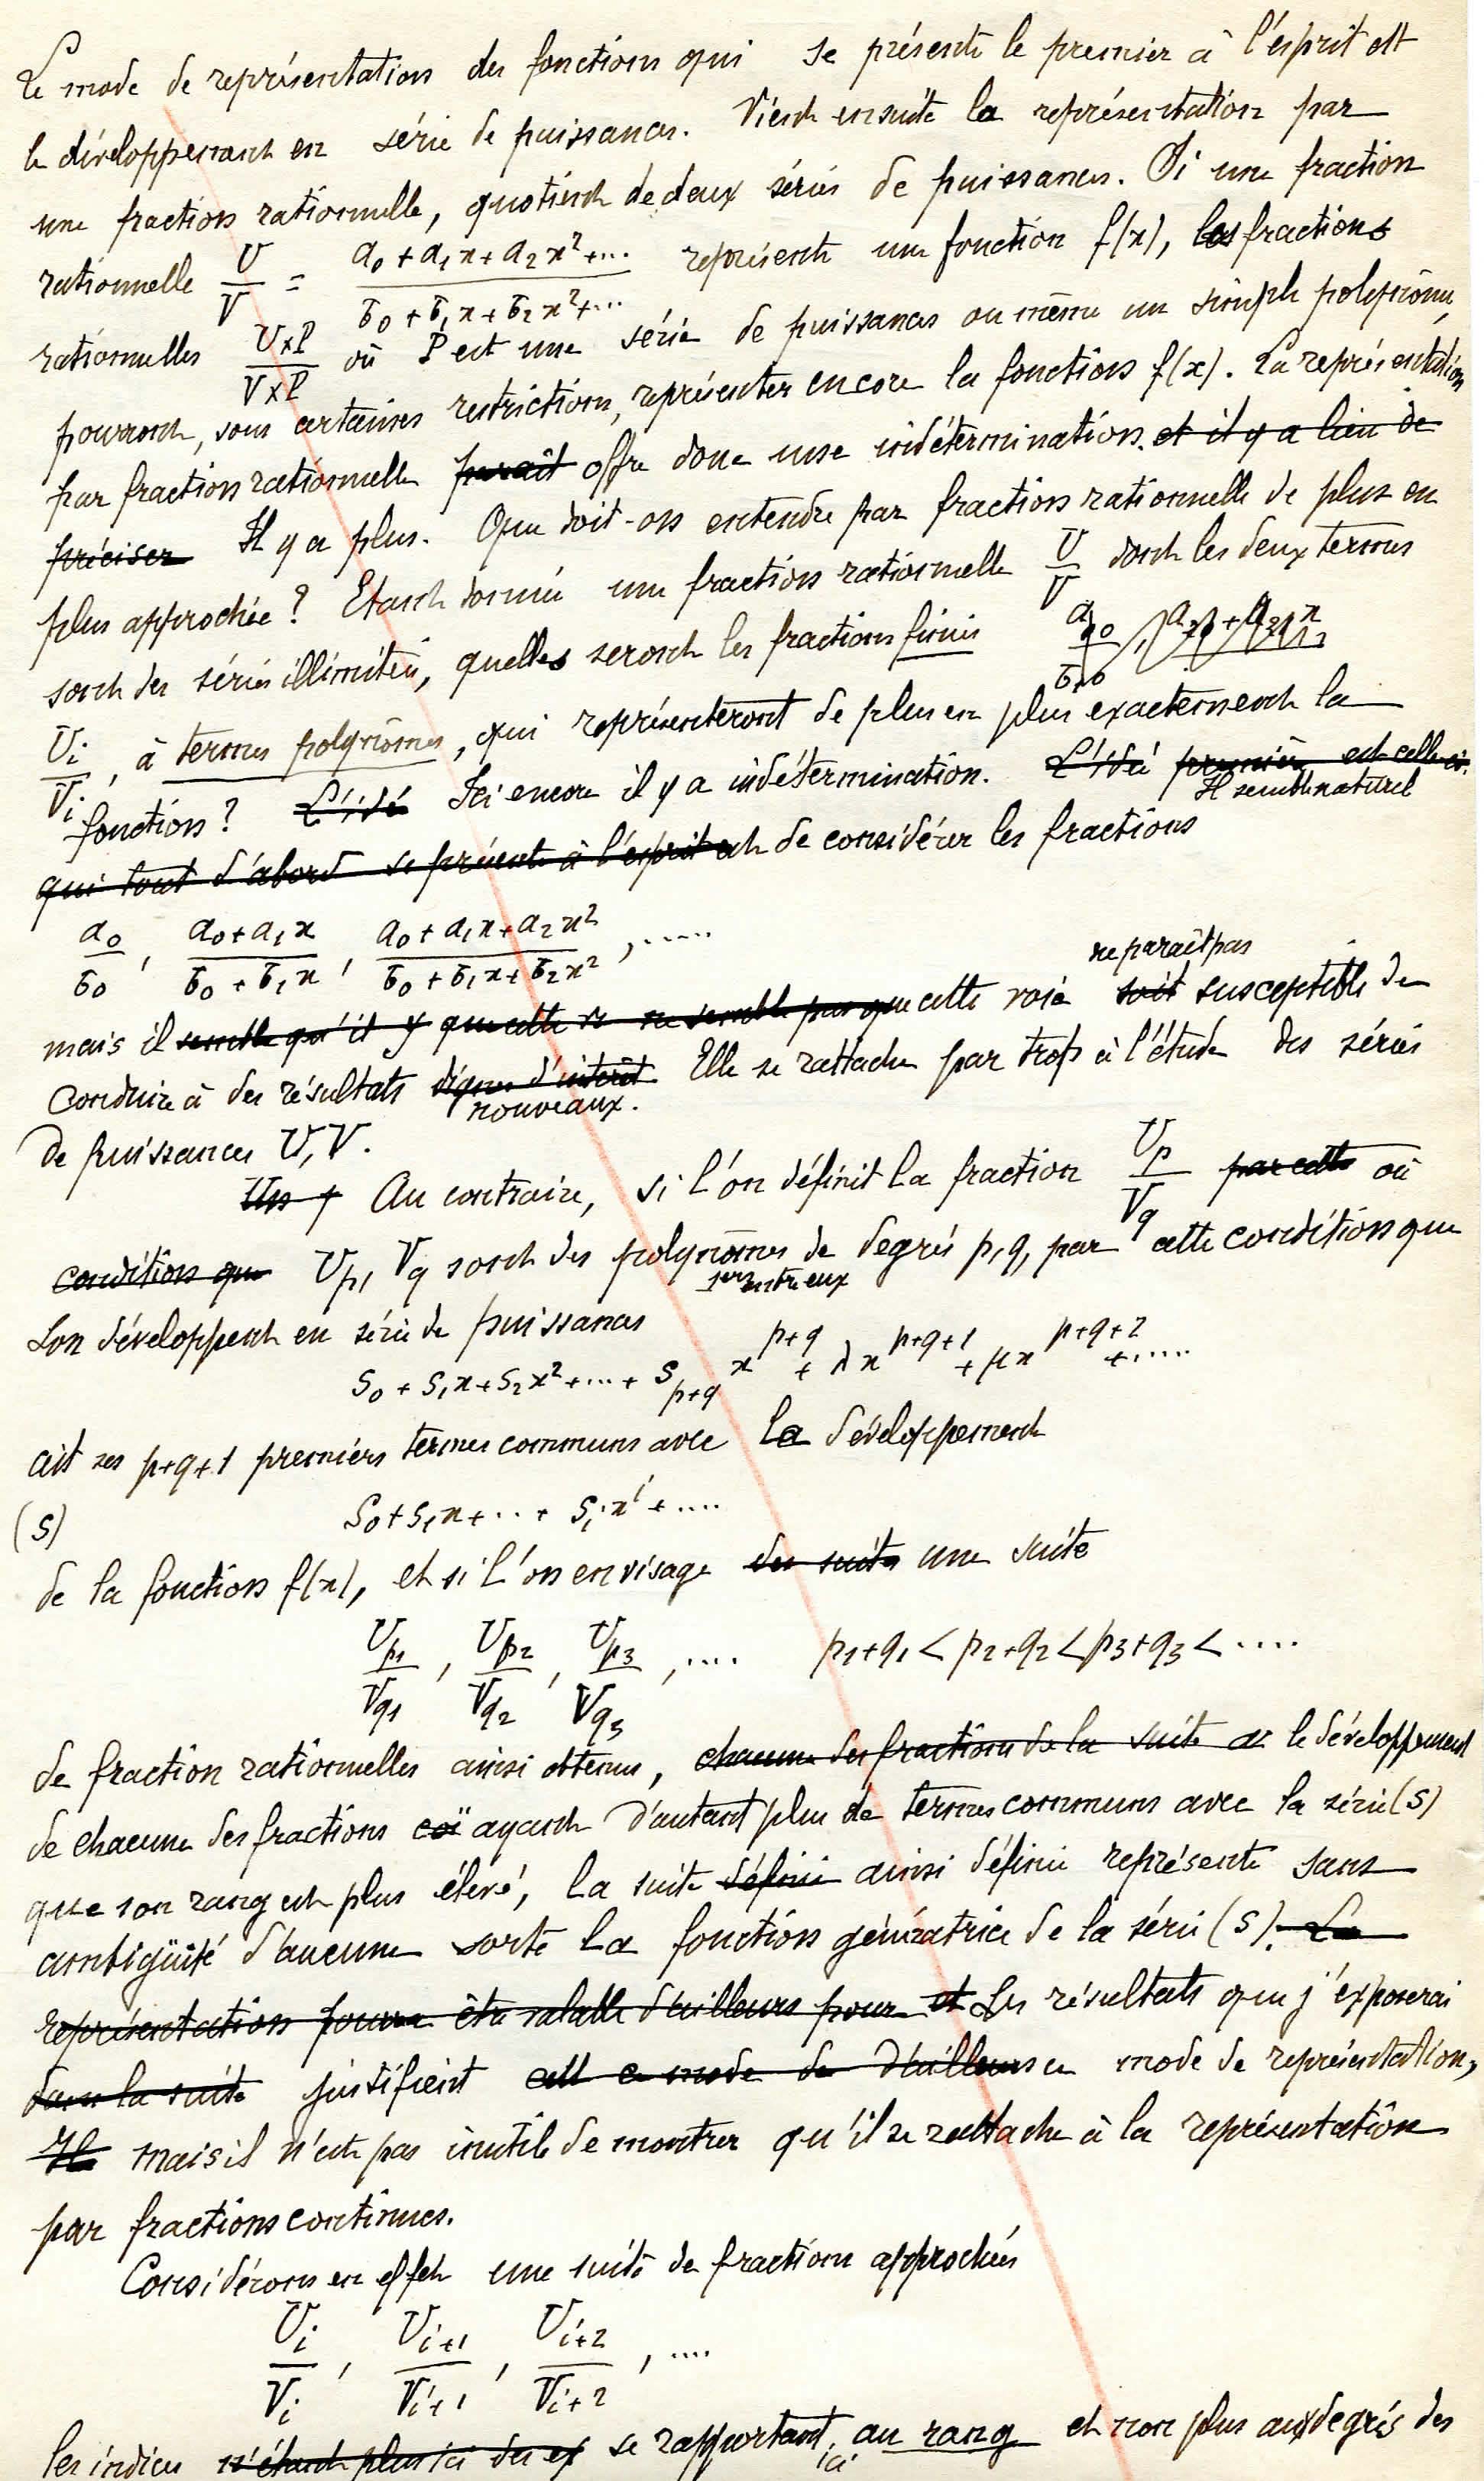 Le mode de représentation des fonctions qui se présente le premier à l'esprit est
le développement en série de puissances. Vient ensuite la représentation par
une fraction rationnelle, quotient de deux séries de puissances. Si une fraction
rationnelle U/V = (a₀ + a₁x + a₂x² + ...)/(b₀ + b₁x + b₂x² + ...) représente une fonction f(x), les fractions
rationnelles U×P/V×P où P est une série de puissances ou même un simple polynôme,
pourront, sous certaines restrictions, représenter encore la fonction f(x). La représentation
par fraction rationnelle paraît offre donc une indétermination. et il y a lieu de
préciser Il y a plus. Que doit-on entendre par fraction rationnelle de plus en
plus approchée? Etant donnée une fraction rationnelle U/V dont les deux termes
sont des séries illimitées, quelles seront les fractions finies
Uᵢ/Vᵢ, à termes polynômes, qui représenteront de plus en plus exactement la
fonction? L'idée Ici encore il y a indétermination. L'idée première est celle-ci.
Il semble naturel
qui tout d'abord se présente à l'esprit est de considérer les fractions
a₀/b₀, (a₀+a₁x)/(b₀+b₁x), (a₀+a₁x+a₂x²)/(b₀+b₁x+b₂x²), .....
ne paraît pas
mais il semble qu'il y que cette ne semble pas que cette voie soit susceptible de
conduire à des résultats dignes d'intérêt. Elle se rattache par trop à l'étude des séries
nouveaux.
de puissances U, V.
Au contraire, si l'on définit la fraction Uₚ/V_q par cette où
condition que Uₚ, V_q sont des polynômes de degrés p, q, par cette condition que
1ers entre eux
son développement en série de puissances
s₀ + s₁x + s₂x² + ... + s_{p+q} x^{p+q} + λx^{p+q+1} + μx^{p+q+2} + .....
ait ses p+q+1 premiers termes communs avec le développement
(S) s₀ + s₁x + ... + sᵢxⁱ + ....
de la fonction f(x), et si l'on envisage des suites une suite
U_{p1}/V_{q1}, U_{p2}/V_{q2}, U_{p3}/V_{q3}, .... p₁+q₁ < p₂+q₂ < p₃+q₃ < ....
de fraction rationnelles ainsi obtenues, chacune des fractions de la suite le développement
de chacune des fractions ayant d'autant plus de termes communs avec la série (S)
que son rang est plus élevé, la suite définie ainsi définie représente sans
ambigüité d'aucune sorte la fonction génératrice de la série (S). La
représentation pourra être valable d'ailleurs pour et Les résultats que j'exposerai
dans la suite justifient ce mode de d'ailleurs ce mode de représentation,
Il mais il n'est pas inutile de montrer qu'il se rattache à la représentation
par fractions continues.
Considérons en effet une suite de fractions approchées
Uᵢ/Vᵢ, Uᵢ₊₁/Vᵢ₊₁, Uᵢ₊₂/Vᵢ₊₂, ....
les indices n'étant plus ici des se rapportant ici au rang et non plus aux degrés des